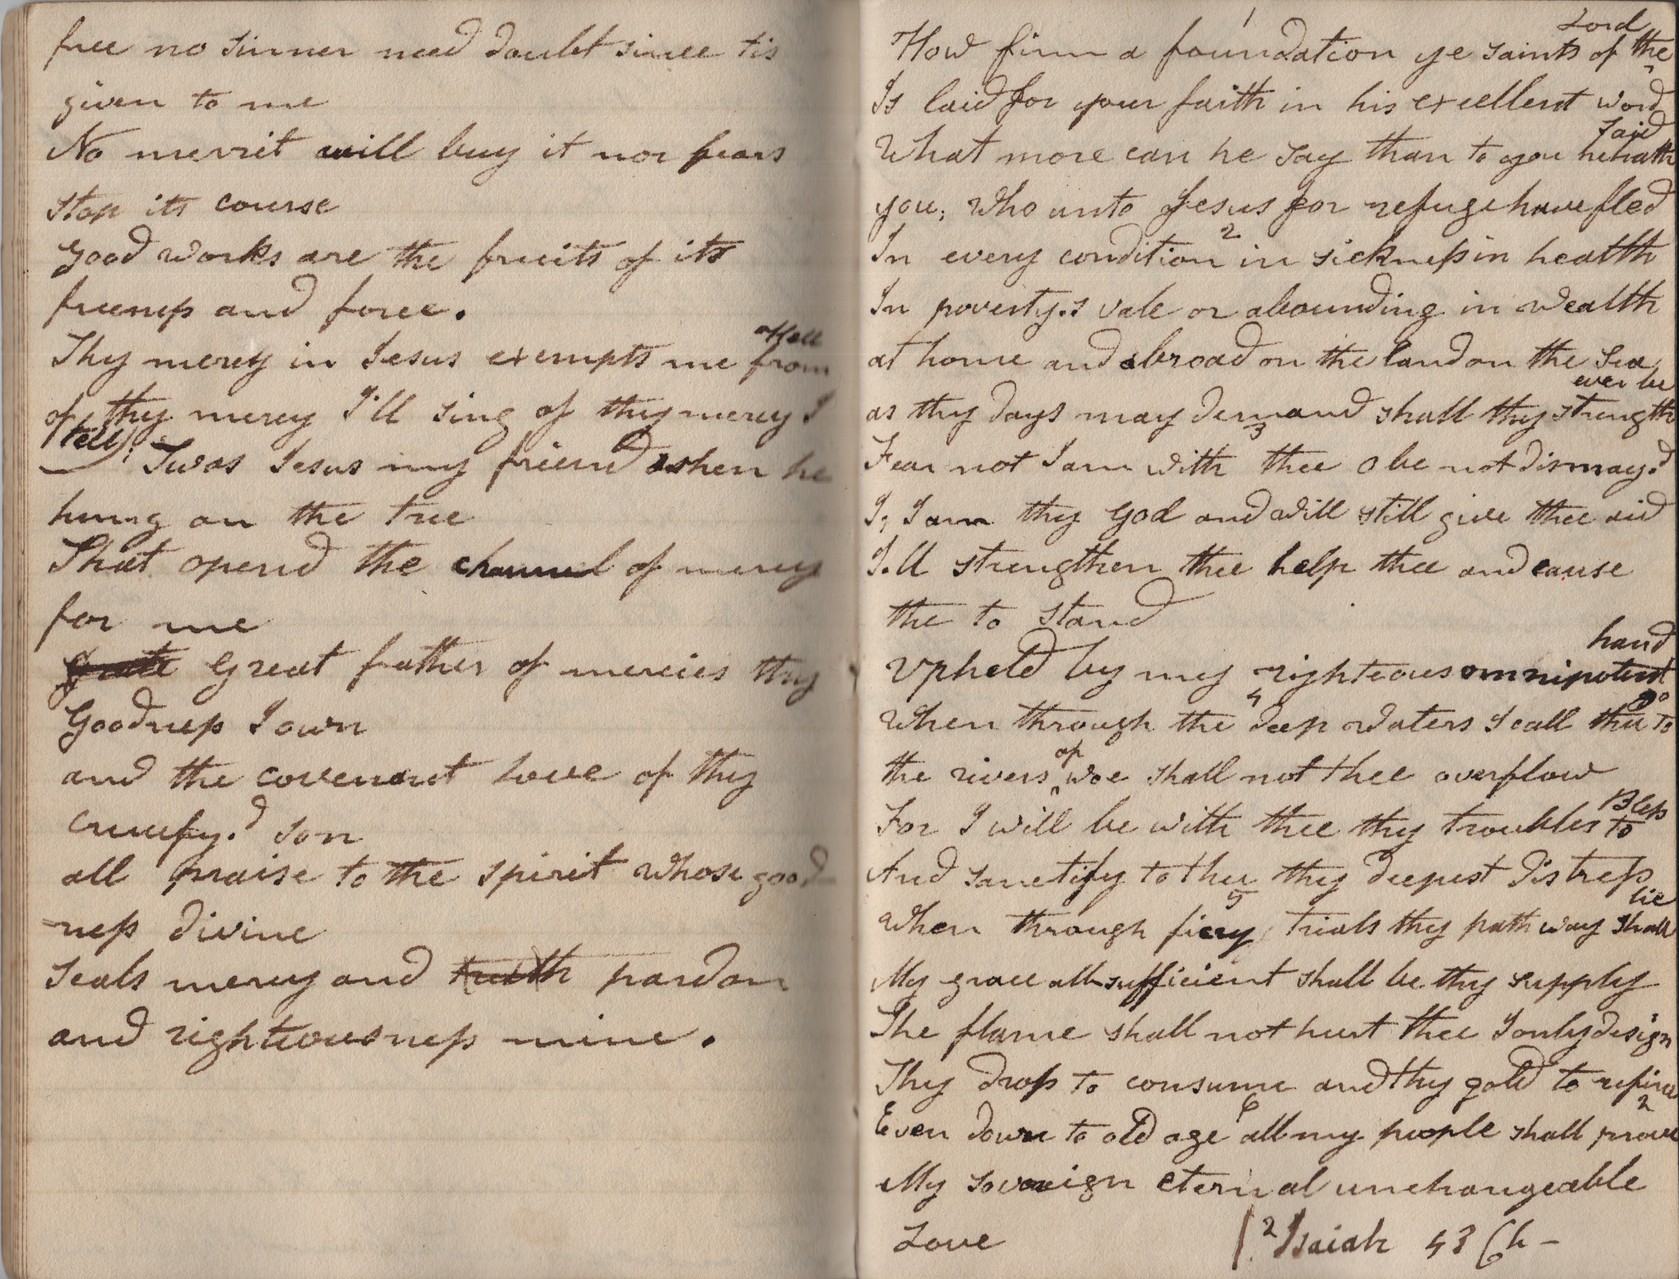 free no sinner need doubt since tis
given to me
No merrit will buy it nor fears
stop its course
good works are the fruits of its
freeness and force.
Thy mercy in Jesus exempts me from Hell
of thy mercy I'll sing of thy mercy I
tell:
Twas Jesus my friend when he
hung on the tree
That opend the channel of mercy
for me
Great father of mercies thy
Goodness I own
and the covenant love of thy
crucify.d son
all praise to the spirit whose good
ness divine
seals mercy and truth pardon
and righteousness mine.
1
How firm a foundation ye saints of the Lord
Is laid for your faith in his excellent word
What more can he say than to you he hath said
you, who unto Jesus for refuge have fled
2
In every condition in sickness in health
In poverty.s vale or abounding in wealth
at home and abroad on the land on the sea
as thy days may demand shall thy strength ever be
3
Fear not I am with thee o be not dismay.d
I, I am thy God and will still give thee aid
I.ll strengthen thee help thee and cause
the to stand
Upheld by my righteous omnipotent hand
4
When through the deep waters I call thee to go
the rivers of woe shall not thee overflow
For I will be with thee thy troubles to Bless
And sanctify to thee thy deepest distress
5
When through fiery trials thy path way shall lie
My grace all sufficient shall be thy supply
The flame shall not hurt thee I only design
Thy dross to consume and thy gold to refine
6 2
Even down to old age all my people shall prove
My sovereign eternal unchangeable
Love
2 Isaiah 43 Ch -